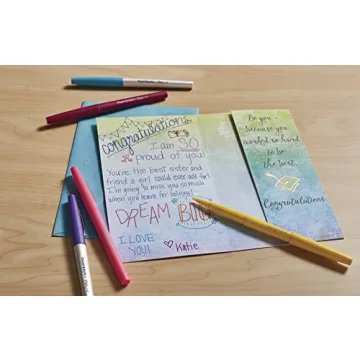 congratulations
I am SO
proud of you!
You're the best sister and
friend a girl could ever ask for!
I'm going to miss you so much
when you leave for college!
DREAM BIG
I LOVE
YOU!
Katie
Be you
because you
worked so hard
to be
the best.
Congratulations